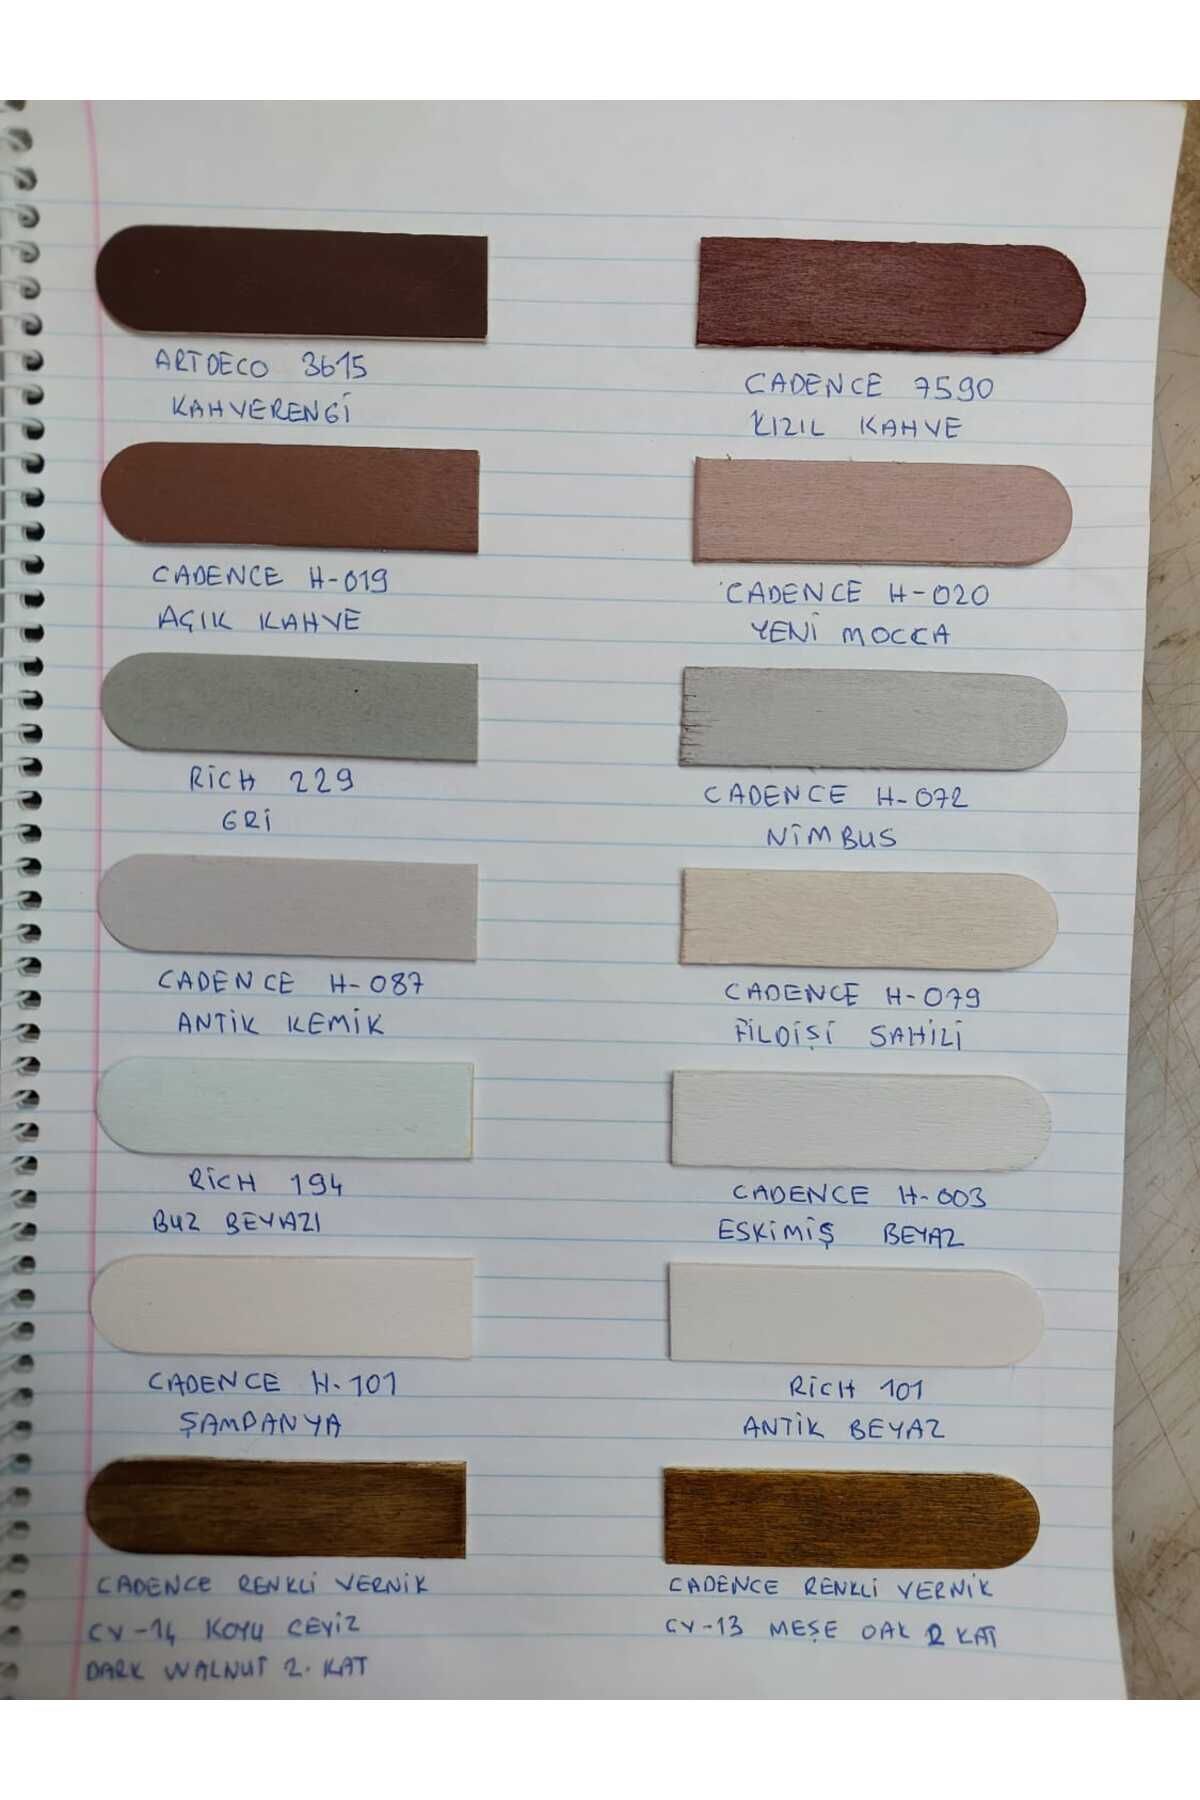 ARTDECO 3615
KAHVERENGİ
CADENCE 7590
KIZIL KAHVE
CADENCE H-019
AÇIK KAHVE
CADENCE H-020
YENİ MOCCA
RİCH 229
GRİ
CADENCE H-072
NİMBUS
CADENCE H-087
ANTİK KEMİK
CADENCE H-079
FİLDİŞİ SAHİLİ
RİCH 194
BUZ BEYAZI
CADENCE H-003
ESKİMİŞ BEYAZ
CADENCE H-101
ŞAMPANYA
RİCH 101
ANTİK BEYAZ
CADENCE RENKLİ VERNİK
CV-14 KOYU CEVİZ
DARK WALNUT 2. KAT
CADENCE RENKLİ VERNİK
CV-13 MEŞE OAK 2 KAT